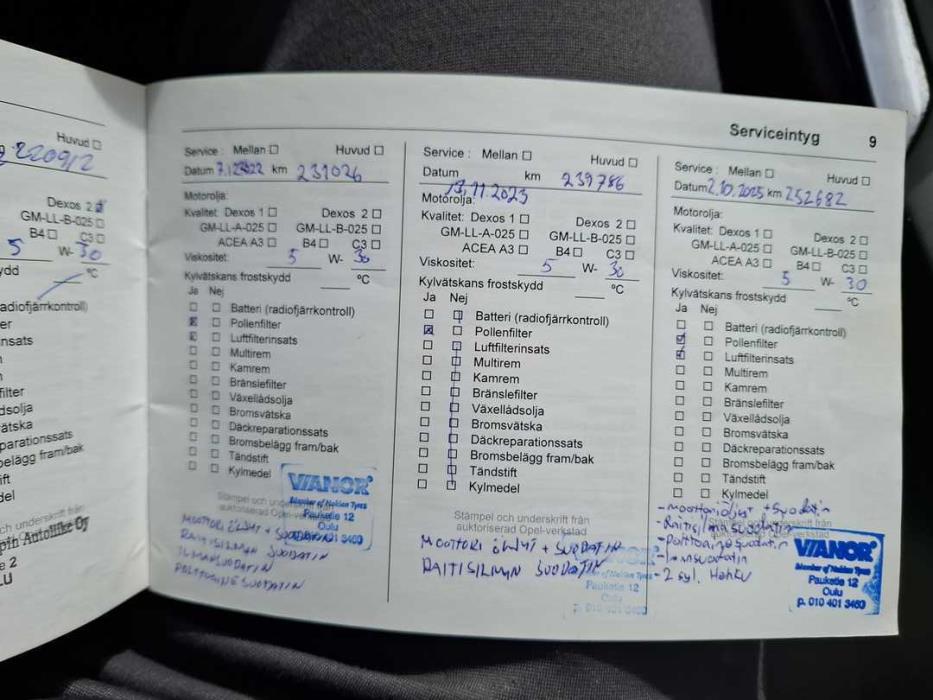 Huvud
220912
Dexos 2
GM-LL-B-025
B4 C3
5 W- 30
ydd °C
adiofjärrkontroll)
er
nsats
filter
dsolja
ätska
parationssats
elägg fram/bak
ift
del
ch underskrift från
Autoliike Oy
e 2
LU
Serviceintyg 9
Service: Mellan Huvud
Datum 7.12.2022 km 231026
Motorolja:
Kvalitet: Dexos 1 Dexos 2
GM-LL-A-025 GM-LL-B-025
ACEA A3 B4 C3
Viskositet: 5 W- 30
Kylvätskans frostskydd °C
Ja Nej
Batteri (radiofjärrkontroll)
Pollenfilter
Luftfilterinsats
Multirem
Kamrem
Bränslefilter
Växellådsolja
Bromsvätska
Däckreparationssats
Bromsbelägg fram/bak
Tändstift
Kylmedel
Stämpel och underskrift från
auktoriserad Opel-verkstad
VIANOR
Member of Nokian Tyres
Pauketie 12
Oulu
p. 010 401 3460
MOOTTORI ÖLJYT + SUODATIN
RAITISILMAN SUODATIN
ILMANSUODATIN
POLTTOAINE SUODATIN
Service: Mellan Huvud
Datum 13.11.2023 km 239786
Motorolja:
Kvalitet: Dexos 1 Dexos 2
GM-LL-A-025 GM-LL-B-025
ACEA A3 B4 C3
Viskositet: 5 W- 30
Kylvätskans frostskydd °C
Ja Nej
Batteri (radiofjärrkontroll)
Pollenfilter
Luftfilterinsats
Multirem
Kamrem
Bränslefilter
Växellådsolja
Bromsvätska
Däckreparationssats
Bromsbelägg fram/bak
Tändstift
Kylmedel
Stämpel och underskrift från
auktoriserad Opel-verkstad
MOOTTORI ÖLJYT + SUODATIN
RAITISILMAN SUODATIN
VIANOR
Member of Nokian Tyres
Pauketie 12
Oulu
p. 010 401 3460
Service: Mellan Huvud
Datum 2.10.2025 km 252682
Motorolja:
Kvalitet: Dexos 1 Dexos 2
GM-LL-A-025 GM-LL-B-025
ACEA A3 B4 C3
Viskositet: 5 W- 30
Kylvätskans frostskydd °C
Ja Nej
Batteri (radiofjärrkontroll)
Pollenfilter
Luftfilterinsats
Multirem
Kamrem
Bränslefilter
Växellådsolja
Bromsvätska
Däckreparationssats
Bromsbelägg fram/bak
Tändstift
Kylmedel
Stämpel och underskrift från
auktoriserad Opel-verkstad
- moottoriöljyt + suodatin
- Raitisilmasuodatin
- Polttoainesuodatin
- Ilmansuodatin
- 2 syl. Hehku
VIANOR
Member of Nokian Tyres
Pauketie 12
Oulu
p. 010 401 3460